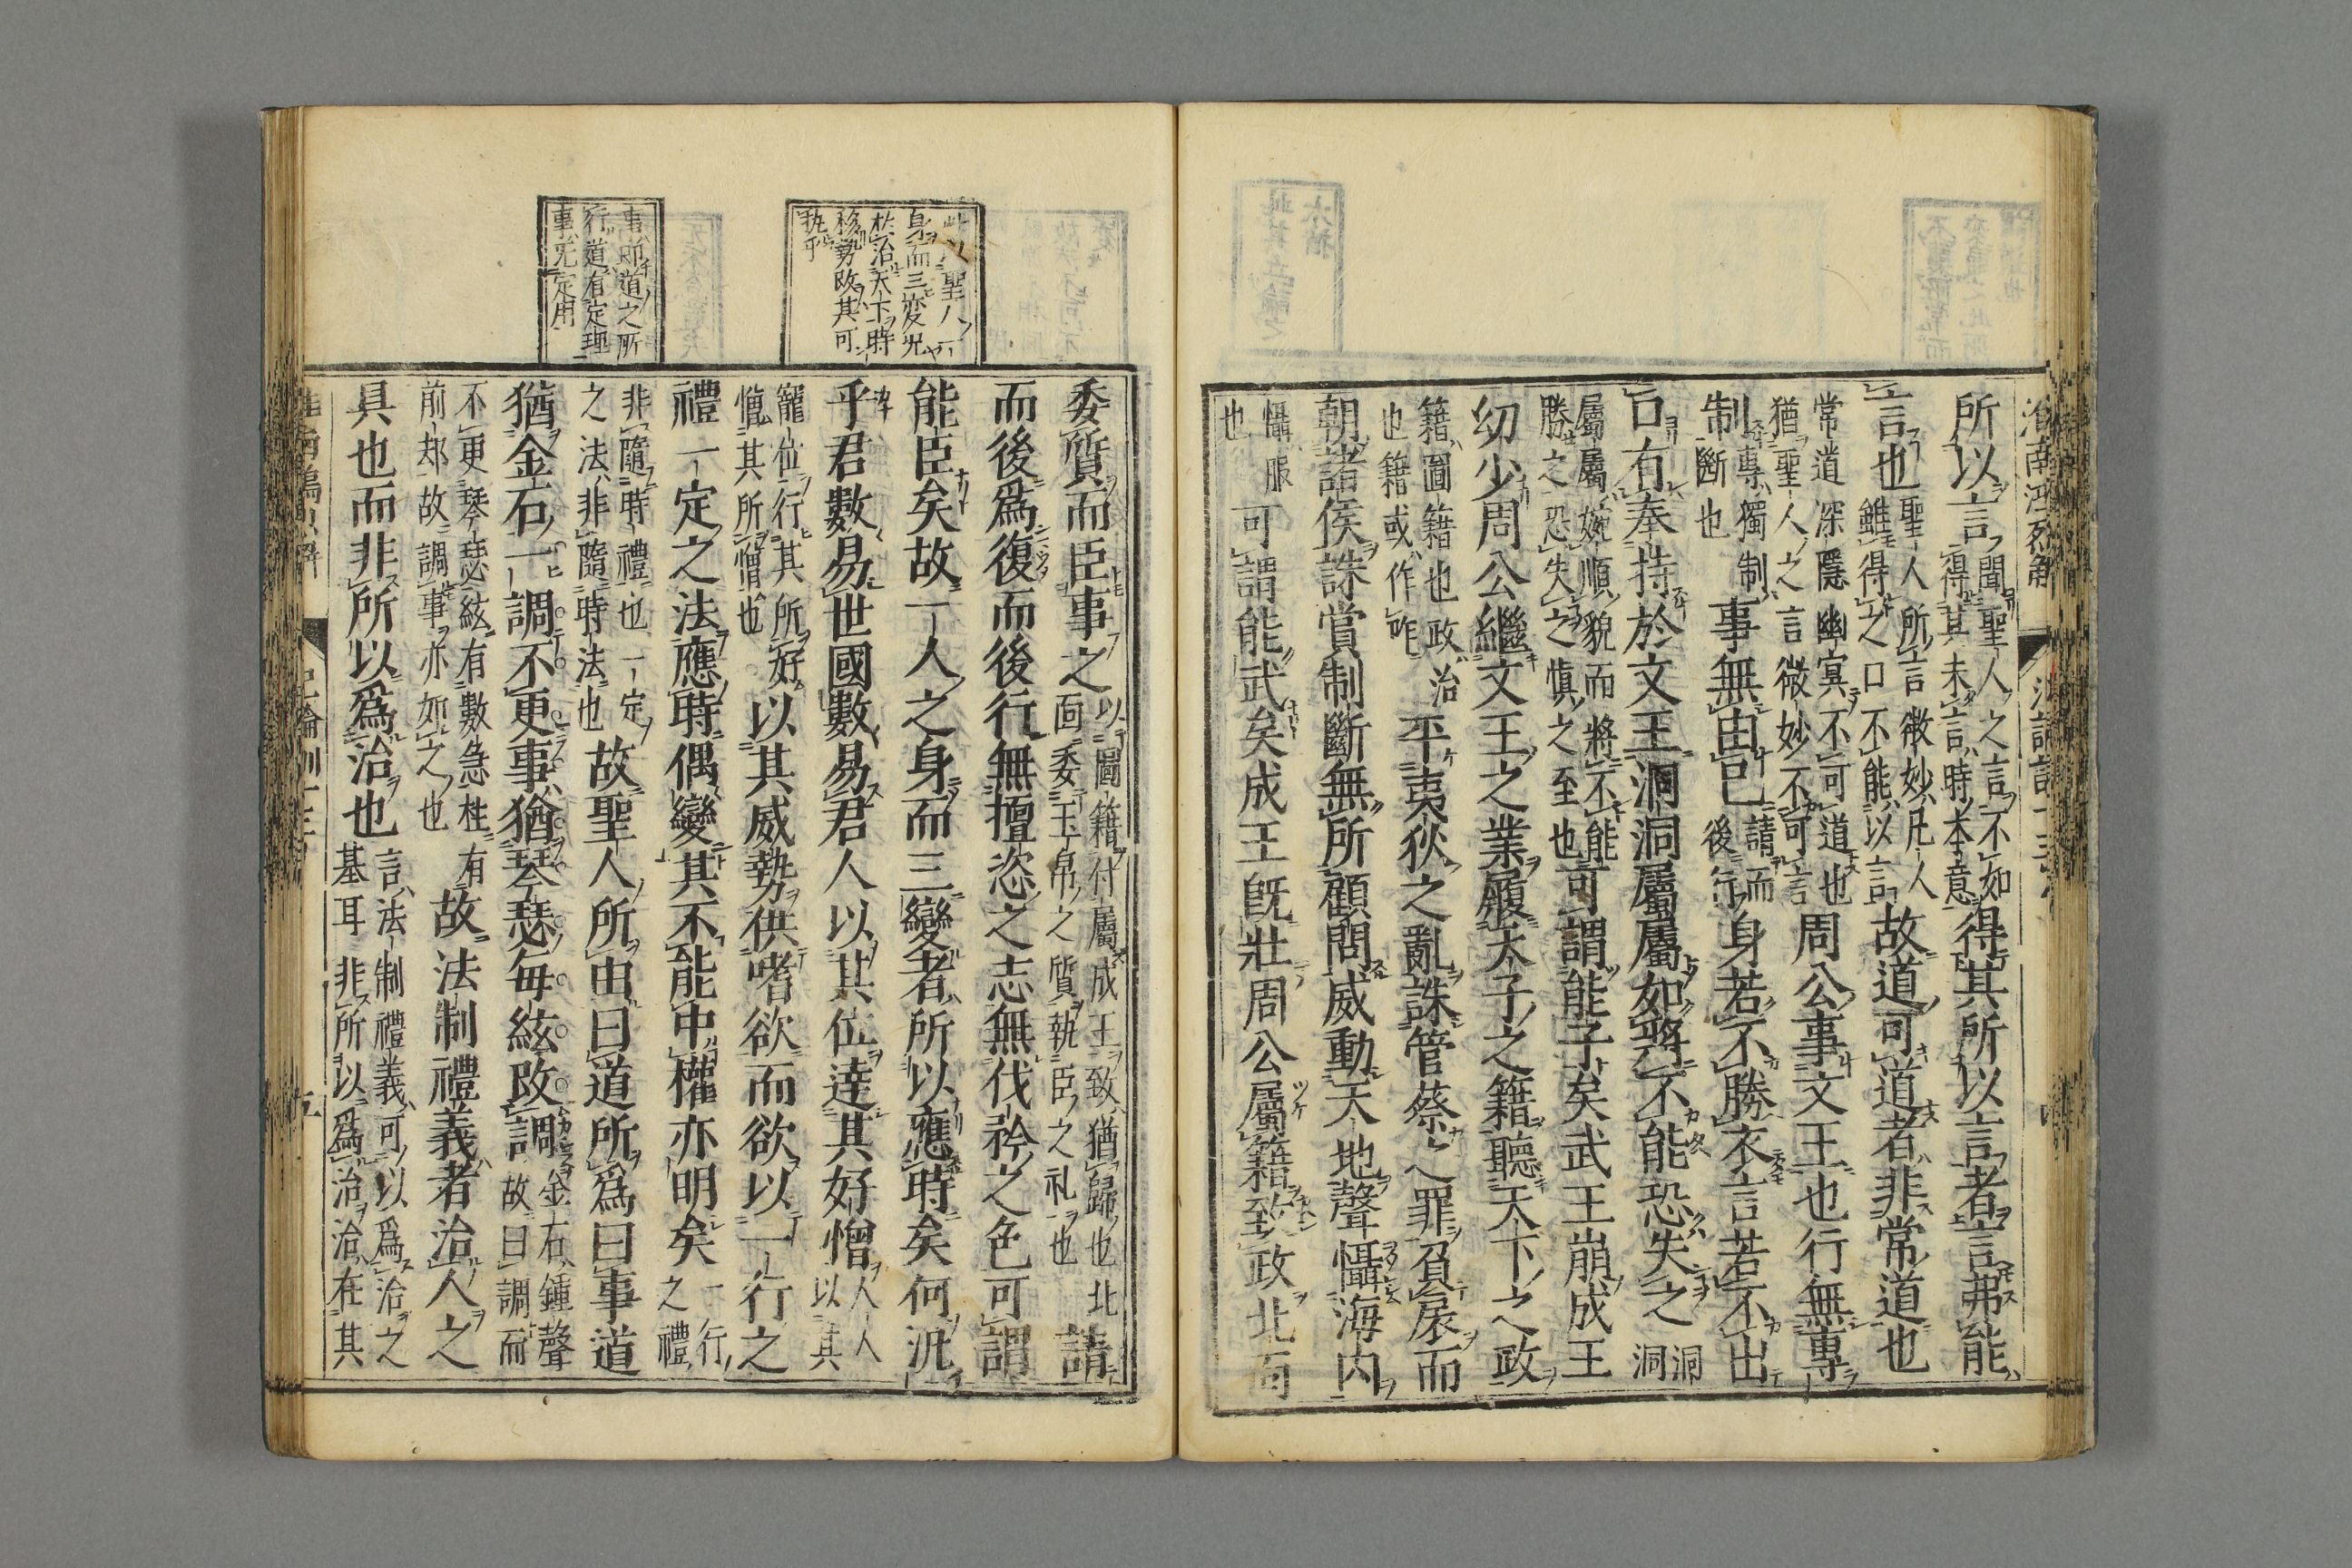 淮南鴻烈解
所以言聞聖人之言不如得其未言時本意得其所以言者言弗能
言也聖人所言微妙凡人雖得之口不能以言故道可道者非常道也
常道深隱幽冥不可道也猶聖人之言微妙不可言周公事文王也行無專
制專獨制斷也事無由己請而後行身若不勝衣言若不出
口有奉持於文王洞洞屬屬如將不能恐失之洞洞
屬屬婉順貌而將不能勝之恐失之慎之至也可謂能子矣武王崩成王
幼少周公繼文王之業履天子之籍聽天下之政
籍圖籍也政治也籍或作阼平夷狄之亂誅管蔡之罪負扆而
朝諸侯誅賞制斷無所顧問威動天地聲懾海内
懾服也可謂能武矣成王既壯周公屬籍致政北面
委質而臣事之以圖籍付屬成王致猶歸也北面委玉帛之質執臣之礼也請
而後爲復而後行無擅恣之志無伐矜之色可謂
能臣矣故一人之身而三變者所以應時矣何况
乎君數易世國數易君人以其位達其好憎人人以其
寵位行其所好憎其所憎也以其威勢供嗜欲而欲以一行之
禮一定之法應時偶變其不能中權亦明矣一行之禮
非隨時禮也一定之法非隨時法也故聖人所由曰道所爲曰事道
猶金石一調不更事猶琴瑟每絃改調金石鍾聲故曰調而
不更琴瑟絃有數急柱有前却故調事亦如之也故法制禮義者治人之
具也而非所以爲治也言法制禮義可以爲治之基耳非所以爲治治在其
此以聖人一
身而三変况
於治天下時
移勢改其可
執乎
事即道之所
行道有定理
事無定用
五